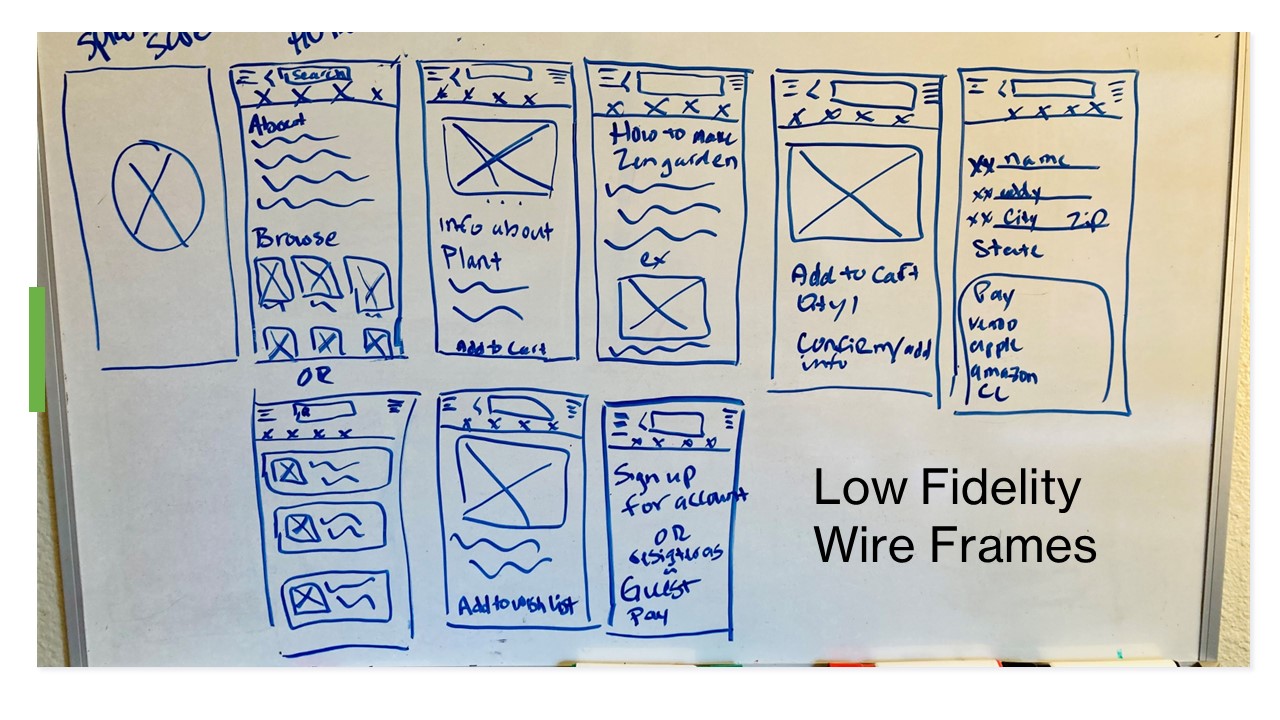 Search
About
Browse
OR
Info about
Plant
Add to Cart
How to make
Zen garden
ex
Add to Cart
Qty 1
Confirm/add
info
xx name
xx addy
xx City Zip
State
Pay
venmo
apple
amazon
CC
Add to wish list
Sign up
for account
OR
as
Guest
Pay
Low Fidelity
Wire Frames